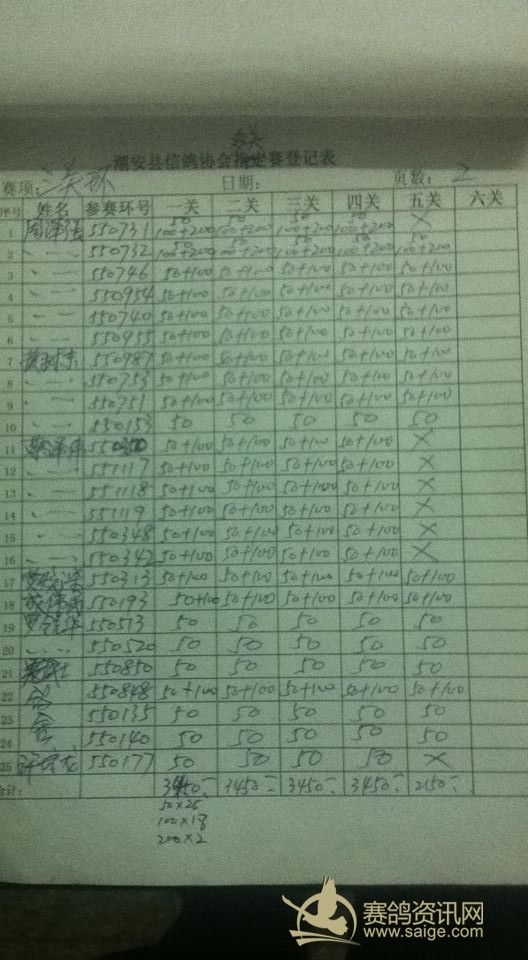 潮安县信鸽协会指定赛登记表
赛项: 三关环 日期: 页数: 2
序号 姓名 参赛环号 一关 二关 三关 四关 五关 六关
1 550731 50 100+200 50 100+200 50 100+200 50 100+200 ×
2 550732 50 100+200 50 100+200 50 100+200 50 100+200 50+100
3 550746 50+100 50+100 50+100 50+100 50+100
4 550954 50+100 50+100 50+100 50+100 50+100
5 550740 50+100 50+100 50+100 50+100 50+100
6 550955 50+100 50+100 50+100 50+100 50+100
7 550987 50+100 50+100 50+100 50+100 50+100
8 550753 50+100 50+100 50+100 50+100 50+100
9 550751 50+100 50+100 50+100 50+100 50+100
10 550153 50 50 50 50 50
11 50+100 50+100 50+100 50+100 ×
12 551117 50+100 50+100 50+100 50+100 ×
13 551118 50+100 50+100 50+100 50+100 ×
14 551119 50+100 50+100 50+100 50+100 ×
15 550348 50+100 50+100 50+100 50+100 ×
16 550342 50+100 50+100 50+100 50+100 ×
17 550313 50+100 50+100 50+100 50+100 50+100
18 550193 50+100 50+100 50+100 50+100 50+100
19 550513 50 50 50 50 50
20 550520 50 50 50 50 50
21 550850 50 50 50 50 50
22 550848 50+100 50+100 50+100 50+100 50+100
23 550135 50 50 50 50 50
24 550140 50 50 50 50 50
25 550177 50 50 50 50 ×
合计: 3450- 3450- 3450- 3450- 2150-
50×25
100×18
200×2
赛鸽资讯网
www.saige.com